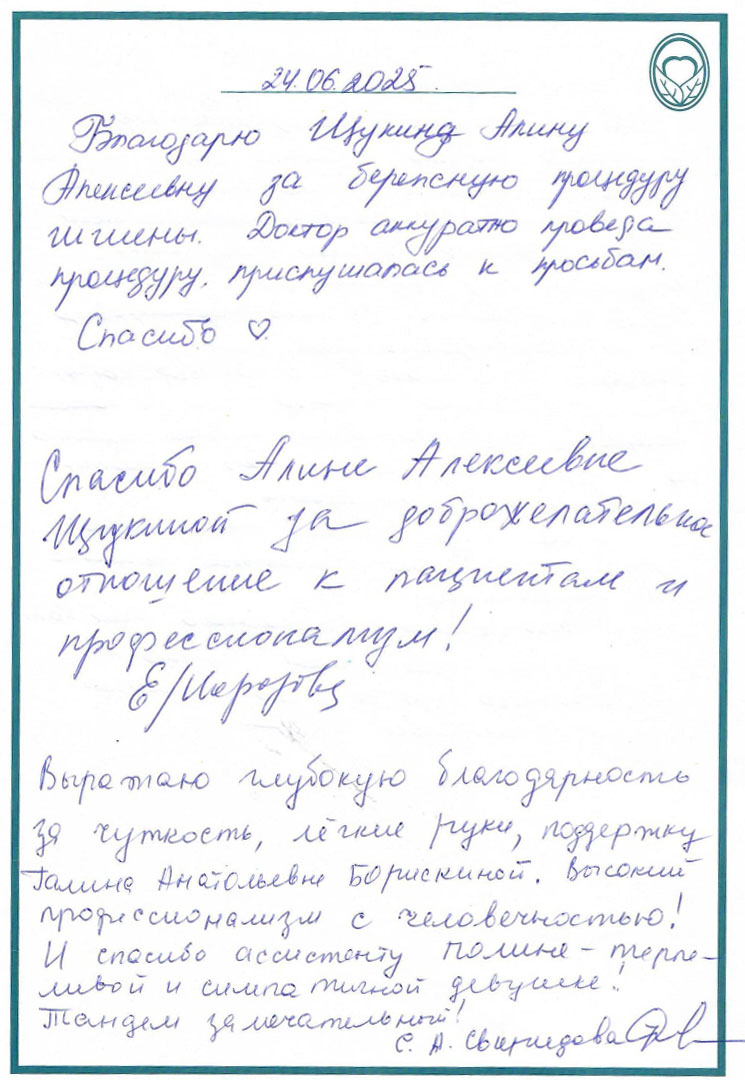 24.06.2025.
Благодарю Щукину Алину
Алексеевну за бережную процедуру
гигиены. Доктор аккуратно провела
процедуру, прислушалась к просьбам.
Спасибо ♡.
Спасибо Алине Алексеевне
Щукиной за доброжелательное
отношение к пациентам и
профессионализм!
Е/
Выражаю глубокую благодарность
за чуткость, лёгкие руки, поддержку
Галине Анатольевне Борискиной. Высокий
профессионализм с человечностью!
И спасибо ассистенту Полине - терпе-
ливой и симпатичной девушке!
Тандем замечательный!
С. А.